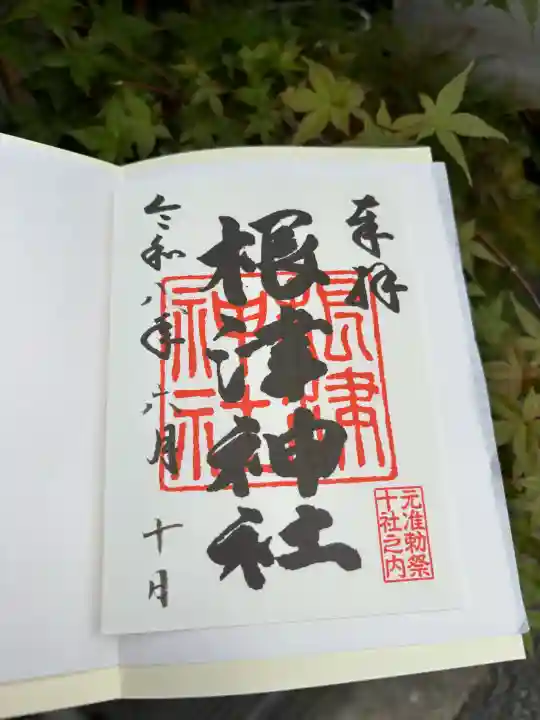 奉拝
根津神社
根津神社
元准勅祭
十社之内
令和八年六月十日